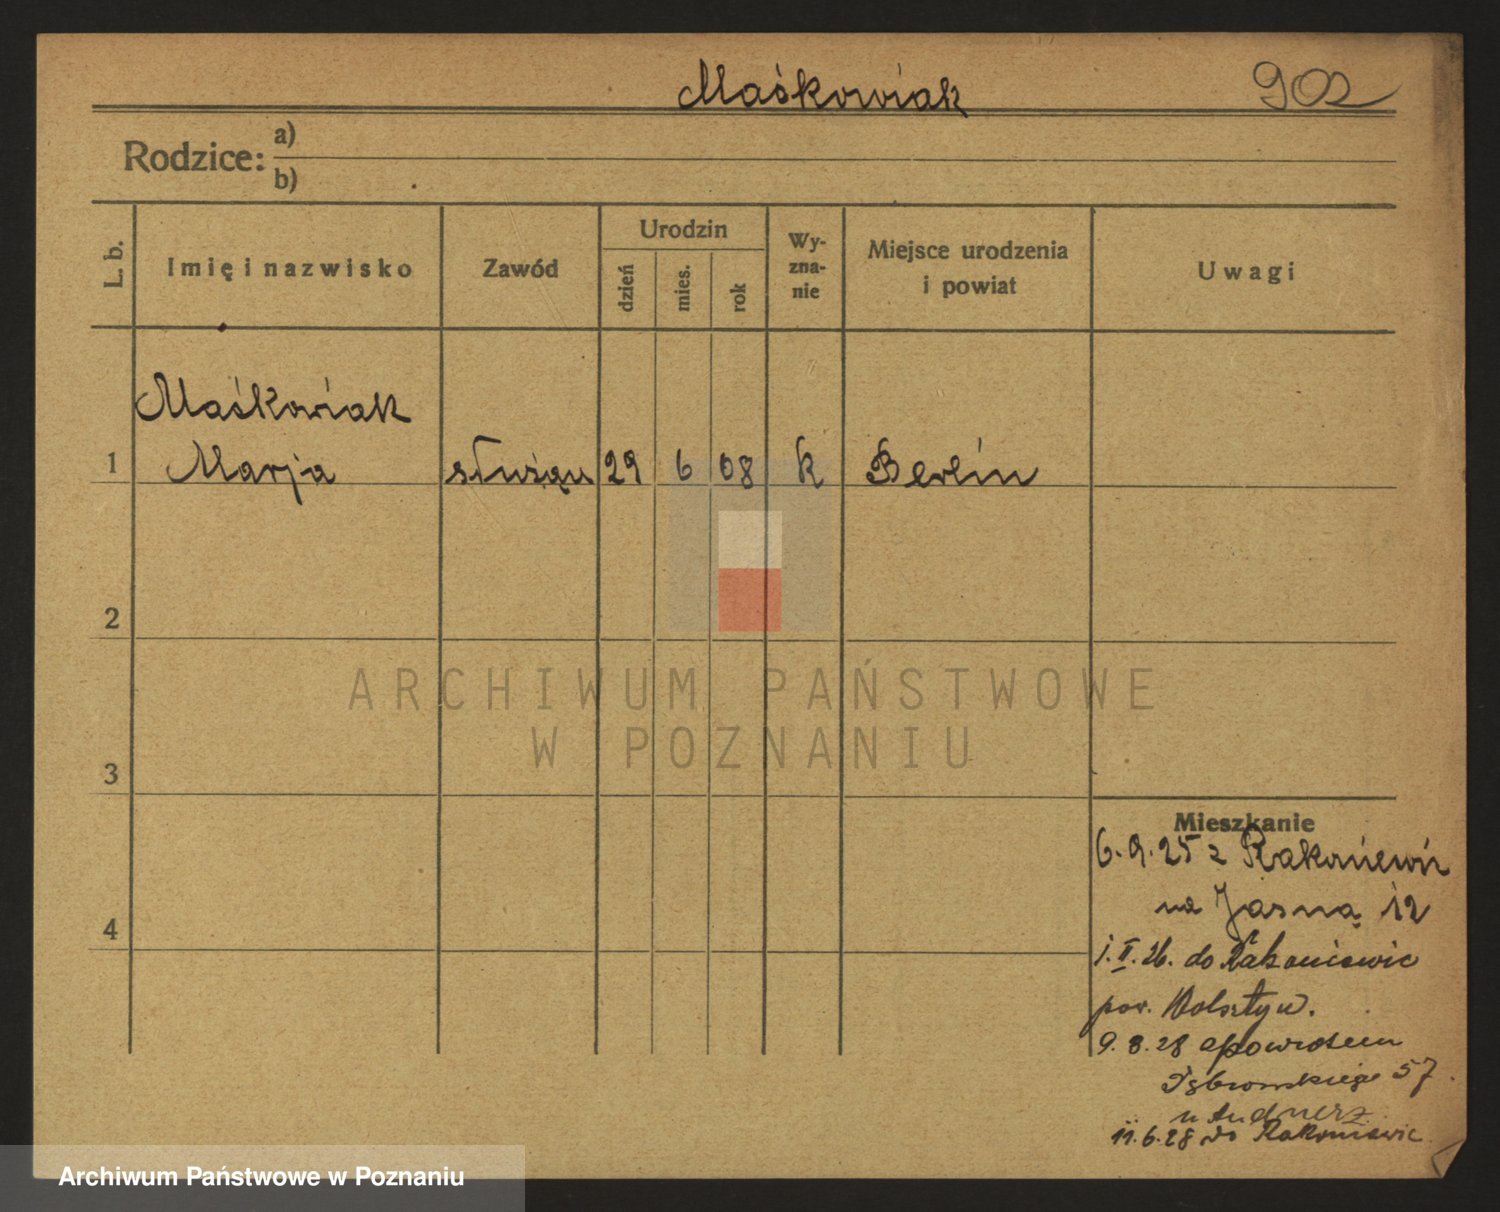 Maśkowiak 902
Rodzice: a)
b)
L. b.
Imię i nazwisko
Zawód
Urodzin
dzień
mies.
rok
Wy-
zna-
nie
Miejsce urodzenia
i powiat
Uwagi
Maśkowiak
1 Marja służąca 29 6 08 k Berlin
2
3
4
Mieszkanie
6.9.25 z Rakoniewic
na Jasną 12
1.II.26. do Rakoniewic
pow. Wolsztyn.
9.3.28 spowrotem
Dąbrowskiego 57
u
11.6.28 do Rakoniewic
ARCHIWUM PAŃSTWOWE
W POZNANIU
Archiwum Państwowe w Poznaniu